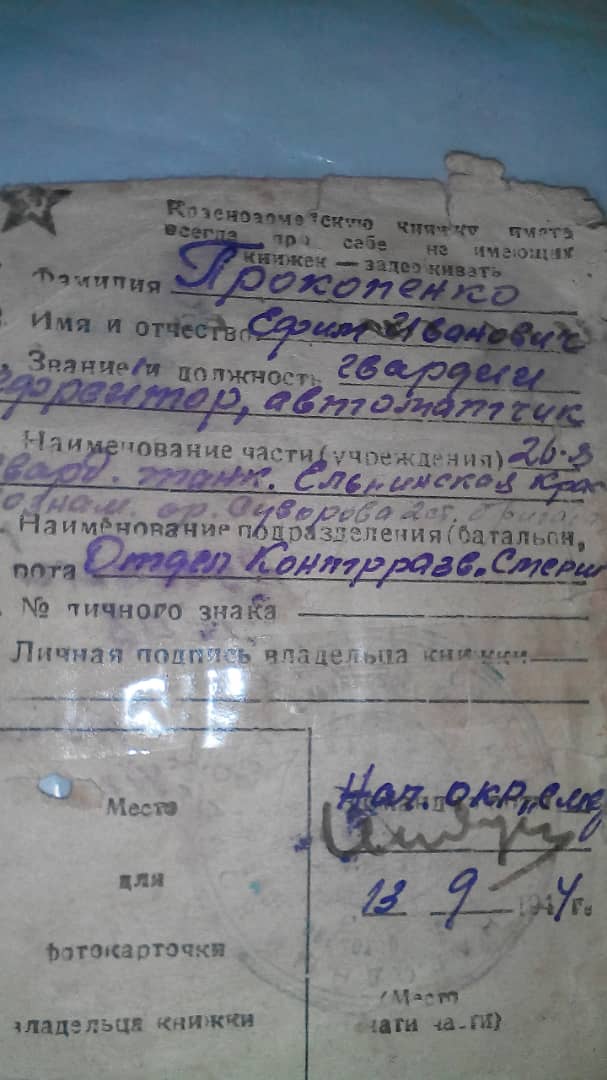 Красноармейскую книжку иметь
всегда при себе не имеющих
книжек — задерживать
Фамилия Прокопенко
Имя и отчество Ефим Иванович
Звание и должность гвардии
ефрейтор, автоматчик
Наименование части (учреждения) 26-я
гвард. танк. Ельнинская Крас
ознам. ор. Суворова 2 ст. бригада
Наименование подразделения (батальон,
рота Отдел Контрразв. Смерш
№ личного знака
Личная подпись владельца книжки
Место
для
фотокарточки
владельца книжки
Нач. окр. „Смер
13 9 1944 г.
(Место
печати части)